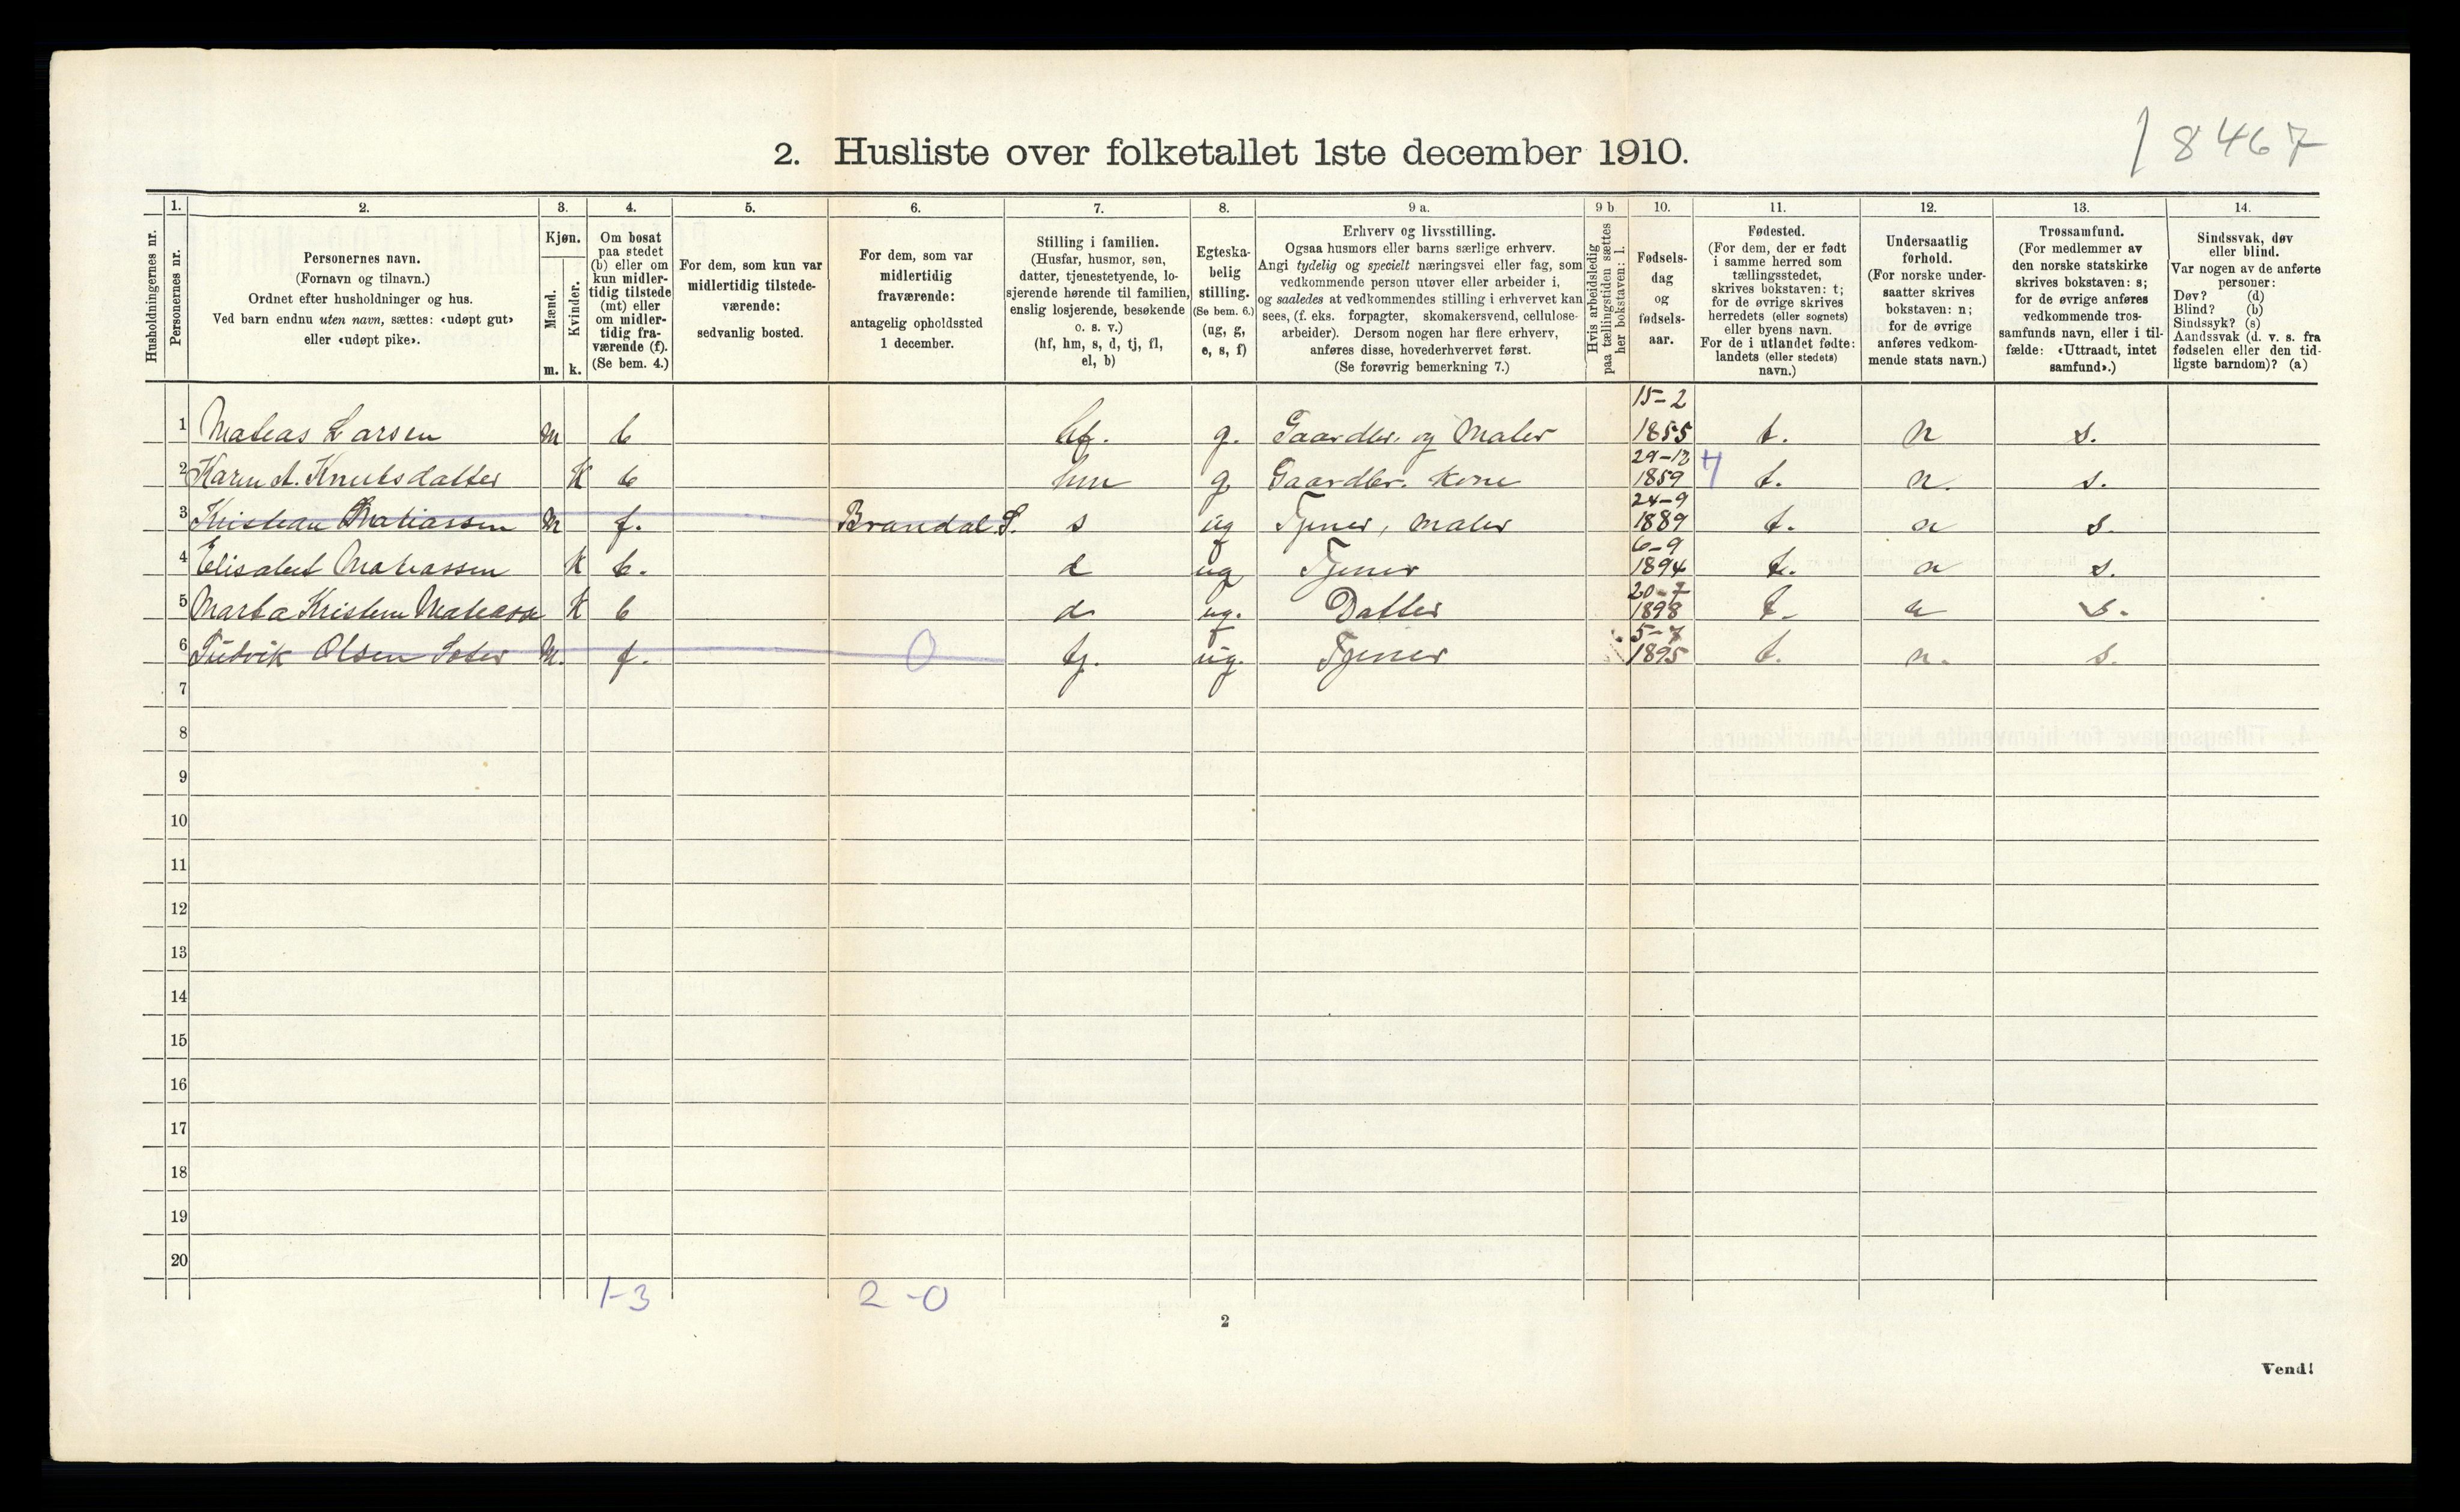 18467
2. Husliste over folketallet 1ste december 1910.
Husholdningernes nr.
1.
Personernes nr.
2.
Personernes navn.
(Fornavn og tilnavn.)
Ordnet efter husholdninger og hus.
Ved barn endnu uten navn, sættes: «udøpt gut»
eller «udøpt pike».
3.
Kjøn.
Mænd.
Kvinder.
m. k.
4.
Om bosat
paa stedet
(b) eller om
kun midler-
tidig tilstede
(mt) eller
om midler-
tidig fra-
værende (f).
(Se bem. 4.)
5.
For dem, som kun var
midlertidig tilstede-
værende:
sedvanlig bosted.
6.
For dem, som var
midlertidig
fraværende:
antagelig opholdssted
1 december.
7.
Stilling i familien.
(Husfar, husmor, søn,
datter, tjenestetyende, lo-
sjerende hørende til familien,
enslig losjerende, besøkende
o. s. v.)
(hf, hm, s, d, tj, fl,
el, b)
8.
Egteska-
belig
stilling.
(Se bem. 6.)
(ug, g,
e, s, f)
9 a.
Erhverv og livsstilling.
Ogsaa husmors eller barns særlige erhverv.
Angi tydelig og specielt næringsvei eller fag, som
vedkommende person utøver eller arbeider i,
og saaledes at vedkommendes stilling i erhvervet kan
sees, (f. eks. forpagter, skomakersvend, cellulose-
arbeider). Dersom nogen har flere erhverv,
anføres disse, hovederhvervet først.
(Se forøvrig bemerkning 7.)
9 b
Hvis arbeidsledig
paa tællingstiden sættes
her bokstaven: l.
10.
Fødsels-
dag
og
fødsels-
aar.
11.
Fødested.
(For dem, der er født
i samme herred som
tællingsstedet,
skrives bokstaven: t;
for de øvrige skrives
herredets (eller sognets)
eller byens navn.
For de i utlandet fødte:
landets (eller stedets)
navn.)
12.
Undersaatlig
forhold.
(For norske under-
saatter skrives
bokstaven: n;
for de øvrige
anføres vedkom-
mende stats navn.)
13.
Trossamfund.
(For medlemmer av
den norske statskirke
skrives bokstaven: s;
for de øvrige anføres
vedkommende tros-
samfunds navn, eller i til-
fælde: «Uttraadt, intet
samfund».)
14.
Sindssvak, døv
eller blind.
Var nogen av de anførte
personer:
Døv? (d)
Blind? (b)
Sindssyk? (s)
Aandssvak (d. v. s. fra
fødselen eller den tid-
ligste barndom)? (a)
1 Mateas Larsen m b hf. g. Gaardbr. og Maler 15-2 1855 t. n s.
2 Karen A. Knutsdatter K b hm g. Gaardbr. Kone 29-12 1859 t. n. s.
3 Kristian Matiassen M f. Brandal S. s ug Tjener, Maler 24-9 1889 t. n s.
4 Elisabet Matiassen K b. d ug Tjener 6-9 1894 t. n s.
5 Marta Kristine K b d ug. Datter 20-7 1898 t. n s.
6 Ludvik Olsen M. f. 0 tj. ug. Tjener 5-7 1895 t. n. s.
7
8
9
10
11
12
13
14
15
16
17
18
19
20
1-3 2-0
2
Vend!